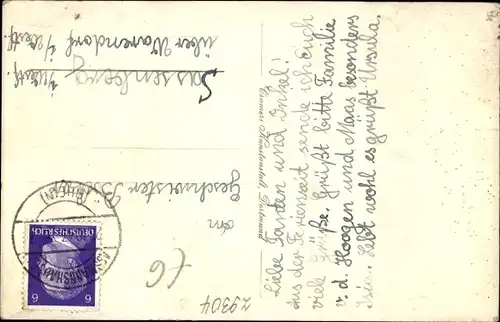 Liebe Tanten und Onkel!
Aus der Ferienzeit sende ich Euch
viele Grüße. Grüßt bitte Familie
v. d. Hoogen und Maas besonders
Isia. Lebt wohl es grüßt Ursula.
Cramers Kunstanstalt, Dortmund
An
Geschwister
Sassenberg
über Warendorf i/Westf.
i/Westf.
DEUTSCHES REICH
6 6
(RHEIN)
£6
29304